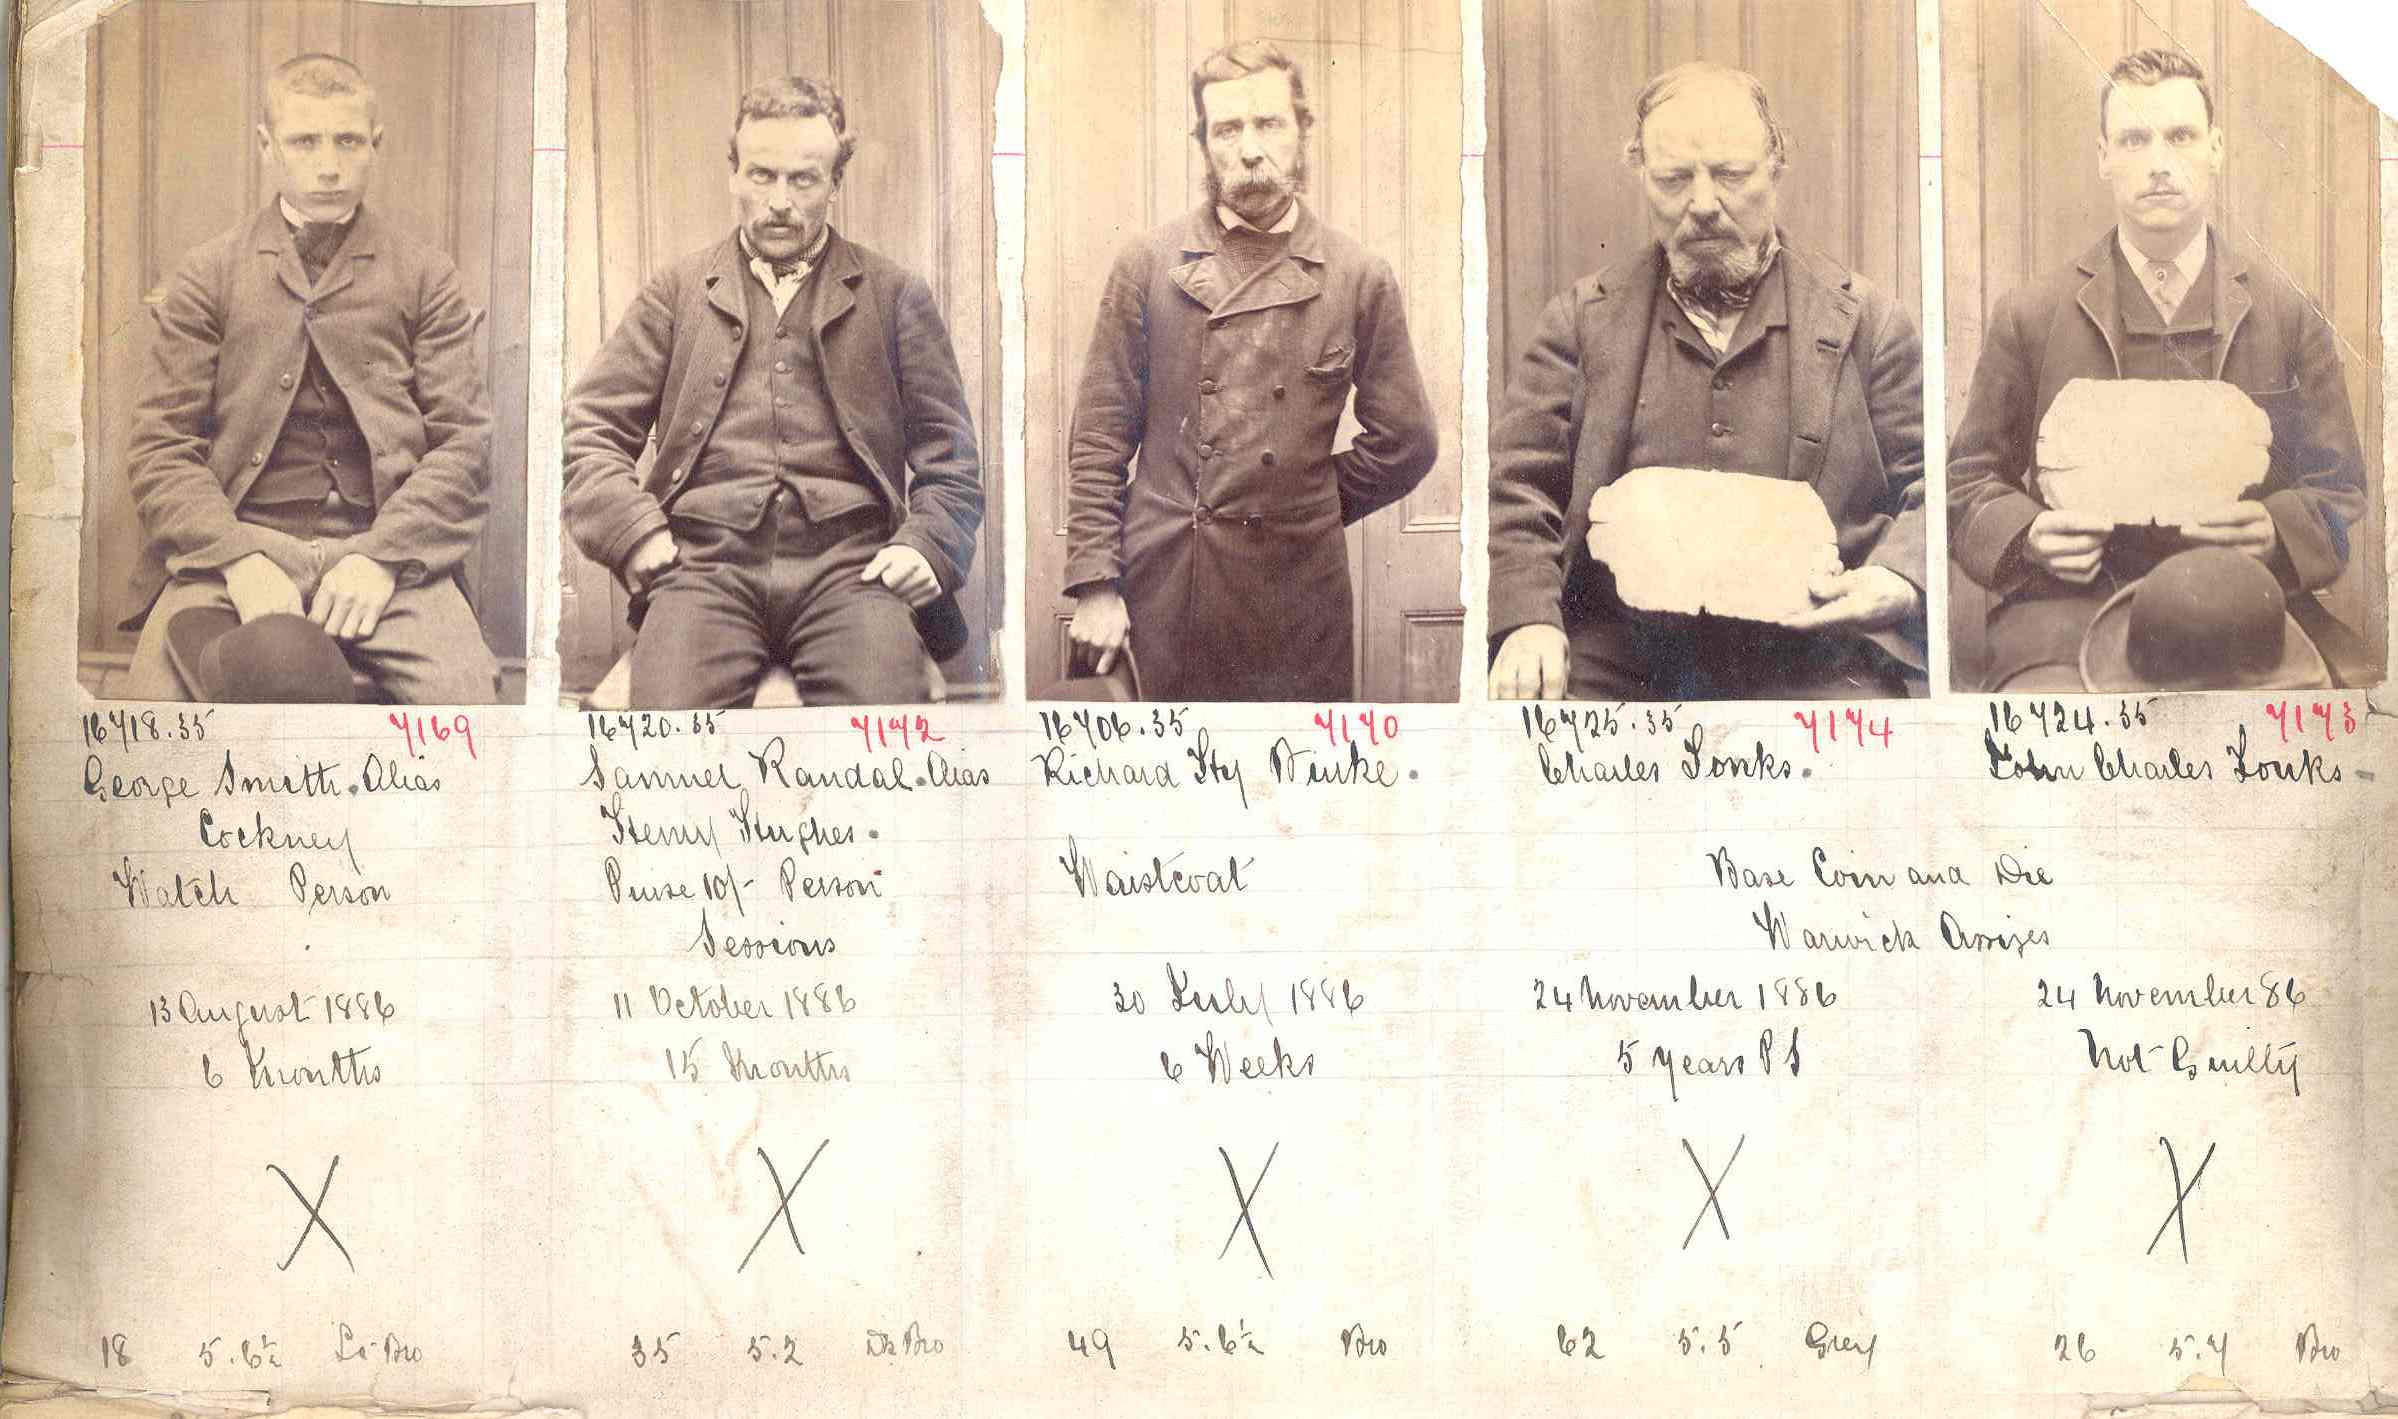 16718.35 7169
George Smith. Alias
Cockney
Watch Person
13 August 1886
6 Months
X
18 5.6½ Lt Bro
16720.35 7172
Samuel Randal. Alias
Henry Hughes.
Purse 10/- Person
Sessions
11 October 1886
15 Months
X
35 5.2 Dk Bro
16706.35 7170
Richard Hy
Waistcoat
30 July 1886
6 Weeks
X
49 5.6½ Bro
16725.35 7174
Charles Tonks.
16724.35 7173
John Charles Tonks
Base Coin and Die
Warwick Assizes
24 November 1886
5 years P S
X
62 5.5 Grey
24 November 86
Not Guilty
X
26 5.7 Bro